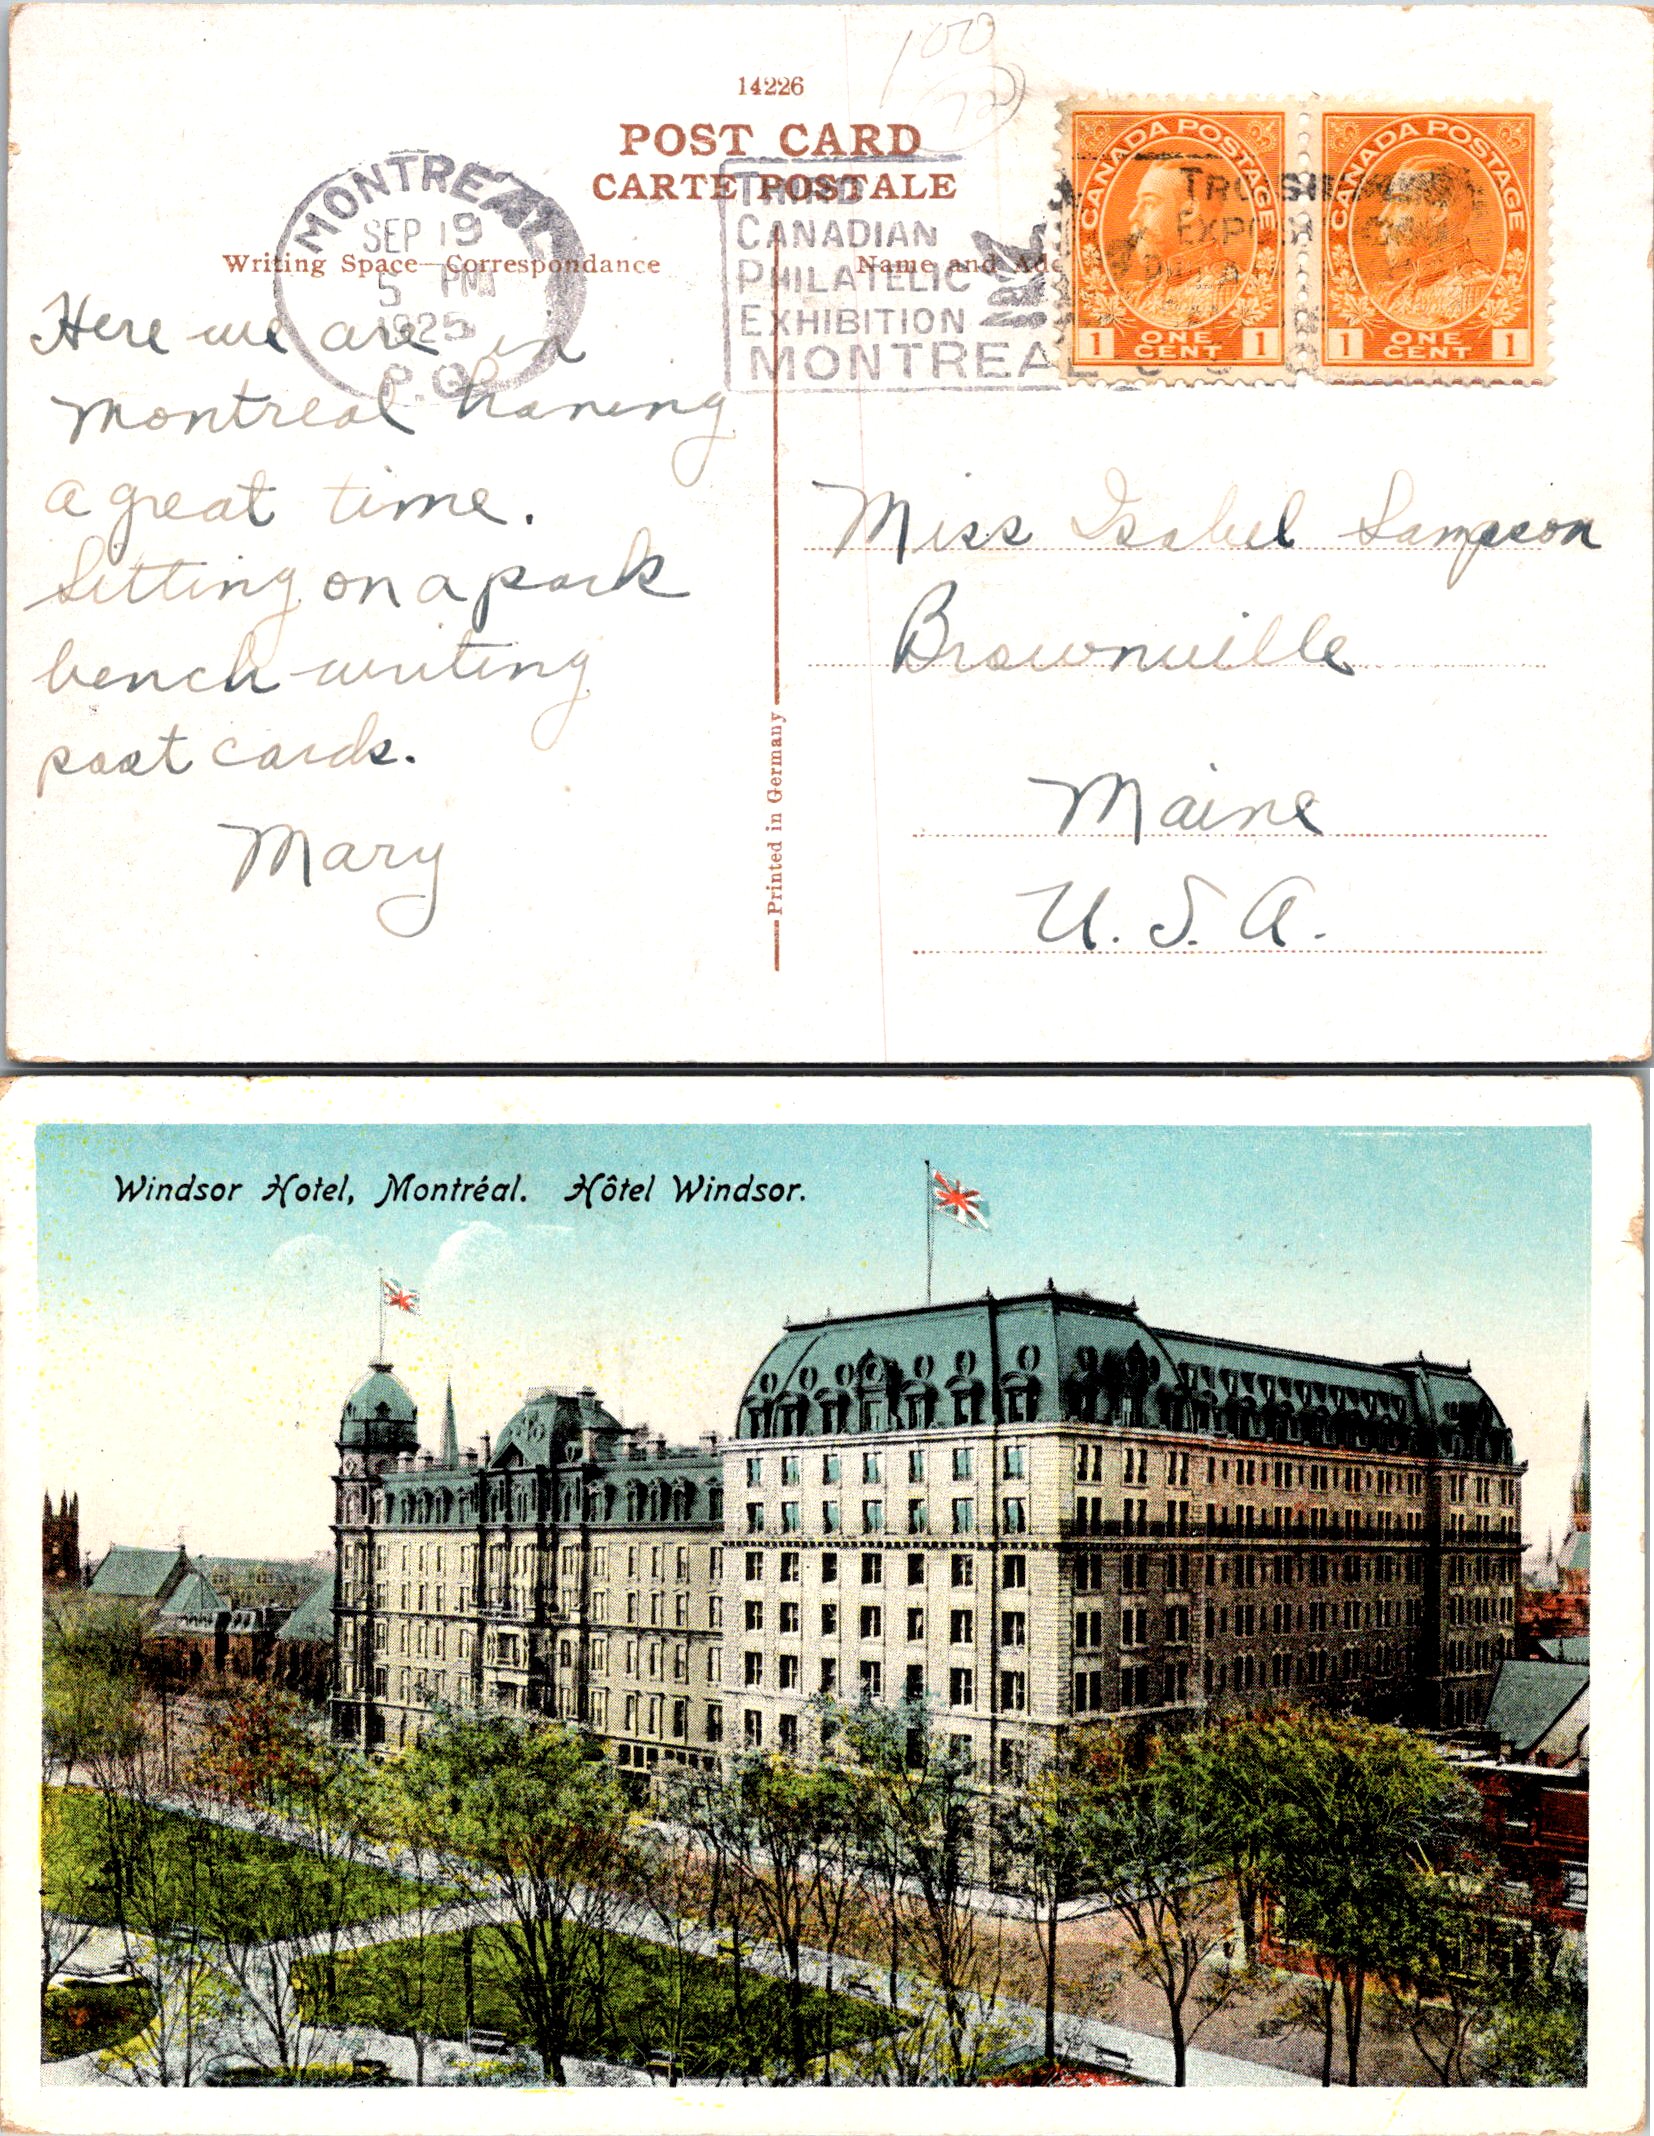 100
72
14226
POST CARD
CARTE POSTALE
MONTREAL
SEP 19
5 PM
1925
P.Q.
THIRD
CANADIAN
PHILATELIC
EXHIBITION
MONTREAL
CANADA POSTAGE
1 ONE CENT 1
CANADA POSTAGE
1 ONE CENT 1
Writing Space—Correspondance
Name and
Here we are in
Montreal having
a great time.
Sitting on a park
bench writing
post cards.
Mary
Printed in Germany
Miss Isabel Sampson
Brownville
Maine
U.S.A.
Windsor Hotel, Montréal. Hôtel Windsor.